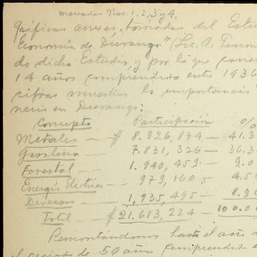 mercados Nos. 1, 2, 3 y 4,
gráficas anexas, tomadas del Estu
Economía de Durango (Lic. A.
do dicho Estudio, y por lo que
14 años comprendidos entre 1936
cifras muestra la importancia
nería en Durango:
Concepto Participación
Metales — $ 8.926,894 — 41.3
Ganadería — 7.831,326 — 36.
Forestal — 1.940,459 — 9.0
Energía Eléctrica — 979,160 — 4.5
Diversos — 1,935,495 — 8.9
Total — $ 21,613,224 — 100.0
Remontándonos hasta el año d
el período de 50 años comprendido e